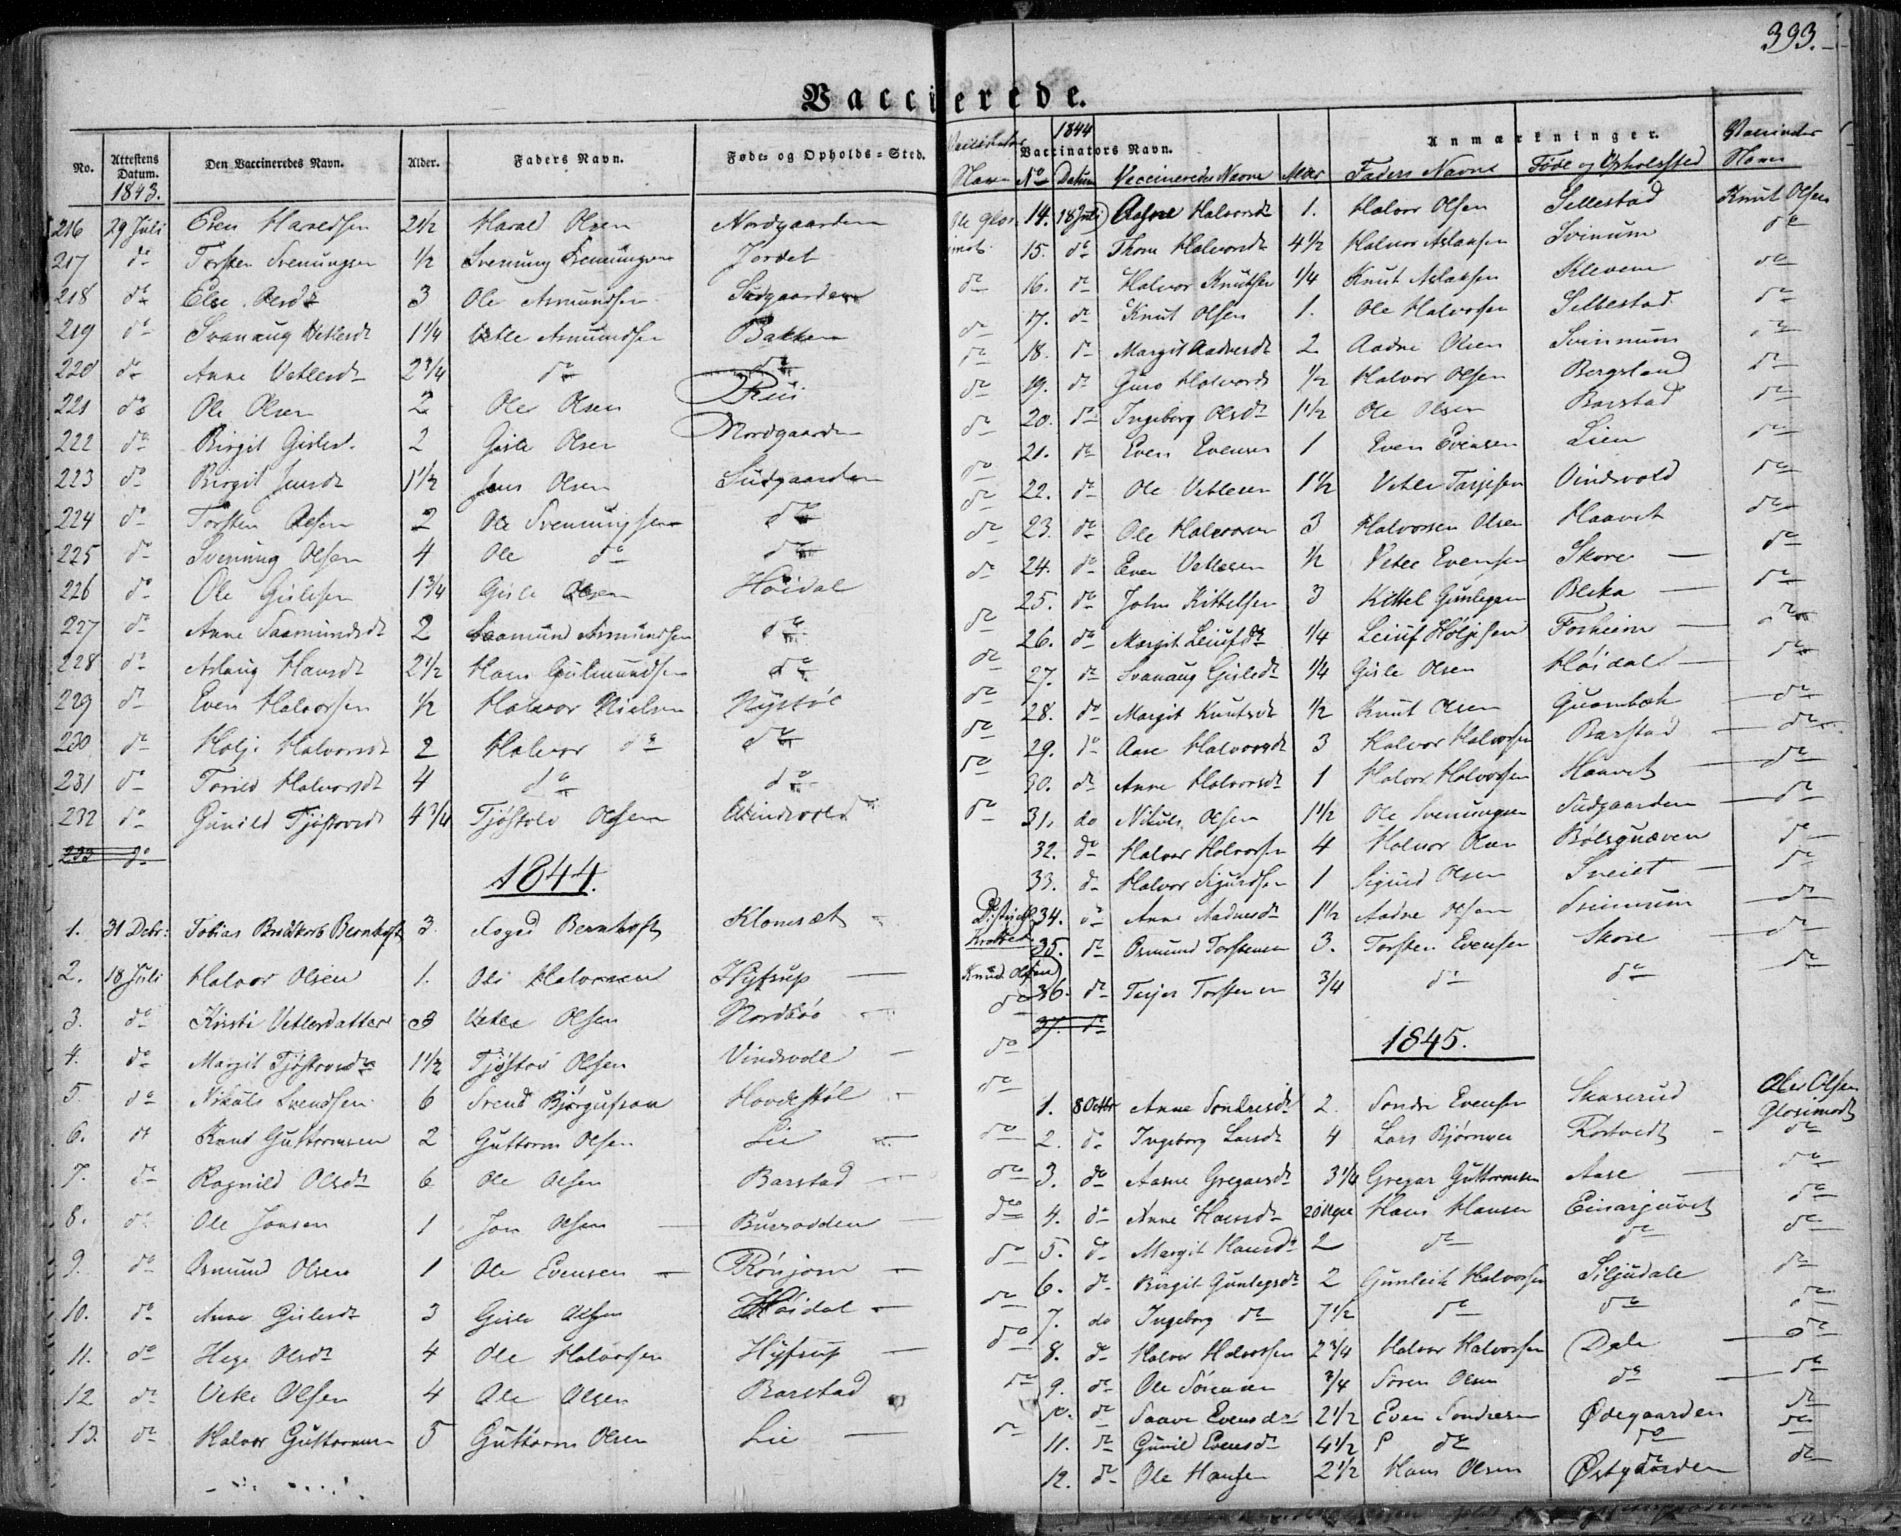 393.
Vaccinerede.
No. Attestens Datum. Den Vaccineredes Navn. Alder. Faders Navn. Føde- og Opholds-Sted.
1843.
216 29 Juli Even Haraldsen 2½ Harald Olsen Nordgaarden
217 do Torsten Svenungsen ½ Svenung Svenungsen Jordet
218 do Else Olsdt 3 Ole Asmundsen Sudgaarden
219 do Svanaug Vetlesdt 1¼ Vetle Asmundsen Bakken
220 do Anne Vetlesdt 2¾ do do
221 do Ole Olsen 2 Ole Olsen Rui
222 do Birgit Gislesd. 2 Gisle Olsen Nordgaarden
223 do Birgit Jensdt 1½ Jens Olsen Sudgaarden
224 do Torsten Olsen 2 Ole Svenungsen do
225 do Svenung Olsen 4 Ole do do
226 do Ole Gislesen 1¾ Gisle Olsen Høidal
227 do Anne Saamundsdt 2 Saamund Asmundsen do
228 do Aslaug Hansdt 2½ Hans Gulmundsen do
229 do Even Halvorsen ½ Halvor Nielsen Nystøl
230 do Holje Halvorsdt 2 Halvor do do
231 do Torild Halvorsdt 4 do do
232 do Gunild Tjøstovsdt 4¾ Tjøstolv Olsen Windsvold
233 do
1844.
1. 31 Debr: Tobias Bernhoft 3. Aagod Bernhoft Klomset
2. 18 Juli Halvor Olsen 1. Ole Halvorsen Hyfsup
3. do Kirsti Vetlesdatter 3 Vetle Olsen Nordbøe
4. do Margit Tjøstovsdt 1½ Tjøstov Olsen Vindsvoll
5. do Nikuls Svendsen 6 Svend Bjørgufson Hovdestøl
6. do Knud Guttormsen 2 Guttorm Olsen Lie
7. do Ragnild Olsdt 6 Ole Olsen Barstad
8. do Ole Jonsen 1 Jon Olsen
9. do Osmund Olsen 1 Ole Evensen Rønjom
10. do Anne Gislesdt 3 Gisle Olsen Høidal
11. do Hege Olsdt 4 Ole Halvorsen Hyfsup
12 do Vetle Olsen 4 Ole Olsen Barstad
13. do Halvor Guttormsen 5 Guttorm Olsen Lie
Vaccinators Navn. Anmærkninger.
1844
No Datum Vaccineredes Navne Alder Faders Navne Føde og Opholdssted Navn
14. 18 Juli Aasne Halvorsdt 1. Halvor Olsen Sellestad Knut Olsen
15. do Thone Halvorsdt 4½ Halvor Aslaksen Svinum do
16. do Halvor Knutsen ¼ Knut Aslaksen Klevene do
17. do Knut Olsen 1. Ole Halvorsen Sellestad do
18. do Margit Aadnesdt 2 Aadne Olsen Svinnum do
19. do Guro Halvorsdt ½ Halvor Olsen Bergsland do
20. do Ingeborg Olsdt 1½ Ole Olsen Barstad do
21. do Even Evensen 1 Even Evensen Lien do
22. do Ole Vetlesen 1½ Vetle Tarjesen Vindsvold do
23. do Ole Halvorsen 3 Halvorsen Olsen Haavet do
24. do Even Vetlesen ½ Vetle Evensen Skore do
25. do John Kittelsen 3 Kittel Gunlegsen Bleka do
26. do Margit Leiufsdt ¼ Leiuf Høljesen Forheim do
27. do Svanaug Gislesdt ¼ Gisle Olsen Høidal do
28. do Margit Knutsdt ½ Knut Olsen Quambæk do
29. do Aase Halvorsdt 3 Halvor Halvorsen Barstad do
30. do Anne Halvorsdt 1 Halvor Halvorsen Haavet do
31. do Nikuls Olsen 1½ Ole Svenungsen Sudgaarden do
32. do Halvor Halvorsen 4 Halvor Olsen Bølsgnæven do
33. do Halvor Sigurdsen 1 Sigurd Olsen Sneiet do
34. do Anne Aadnesdt 1½ Aadne Olsen Svinnum do
35. do Osmund Torstensen 3. Torsten Evensen Skore do
Knud Olsen
36. do Terjes Torstensen ¾ do do do
37. do
1845.
1. 8 Octbr Anne Sondresdt 2. Sondre Evensen Skaserud Ole Olsen Glosimodt
2. do Ingeborg Larsdt 4 Lars Bjørnsen Rotvedt do
3. do Aasne Gregarsdt 3¼ Gregar Guttormsen Aase do
4. do Anne Hansdt 20 Uger Hans Hansen Einarjuvet do
5. do Margit Hansdt 2 do do do
6. do Birgit Gunlegsdt 2 Gunleik Halvorsen Siljudale do
7. do Ingeborg do 7½ do do do
8. do Halvor Halvorsen 2¾ Halvor Halvorsen Dale do
9. do Ole Sørensen ¾ Søren Olsen do do
10. do Saave Evensdt 2½ Even Sondresen Ødegaarden do
11. do Gunil Evensdt 4½ do do do
12. do Ole Hansen 2½ Hans Olsen Østgaarden do